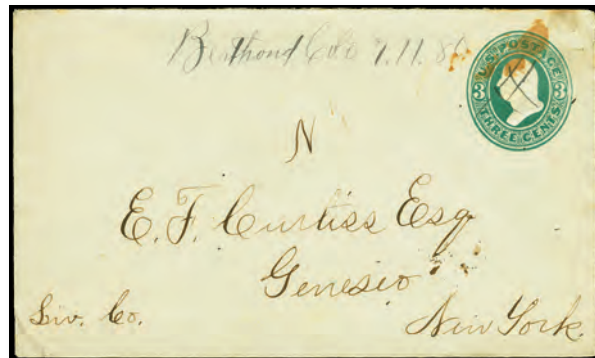 Berthoud Colo 7.11.80
U.S. POSTAGE
3 3
THREE CENTS
N
E. F. Curtiss Esq
Geneseo
Liv. Co.
New York.